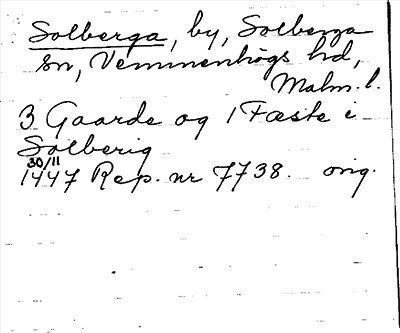 Solberga, by, Solberga
sn, Vemmenhögs hd,
Malm. l.
3 Gaarde og 1 Fæste i
Solberig
30/11
1447 Rep. nr 7738. orig.